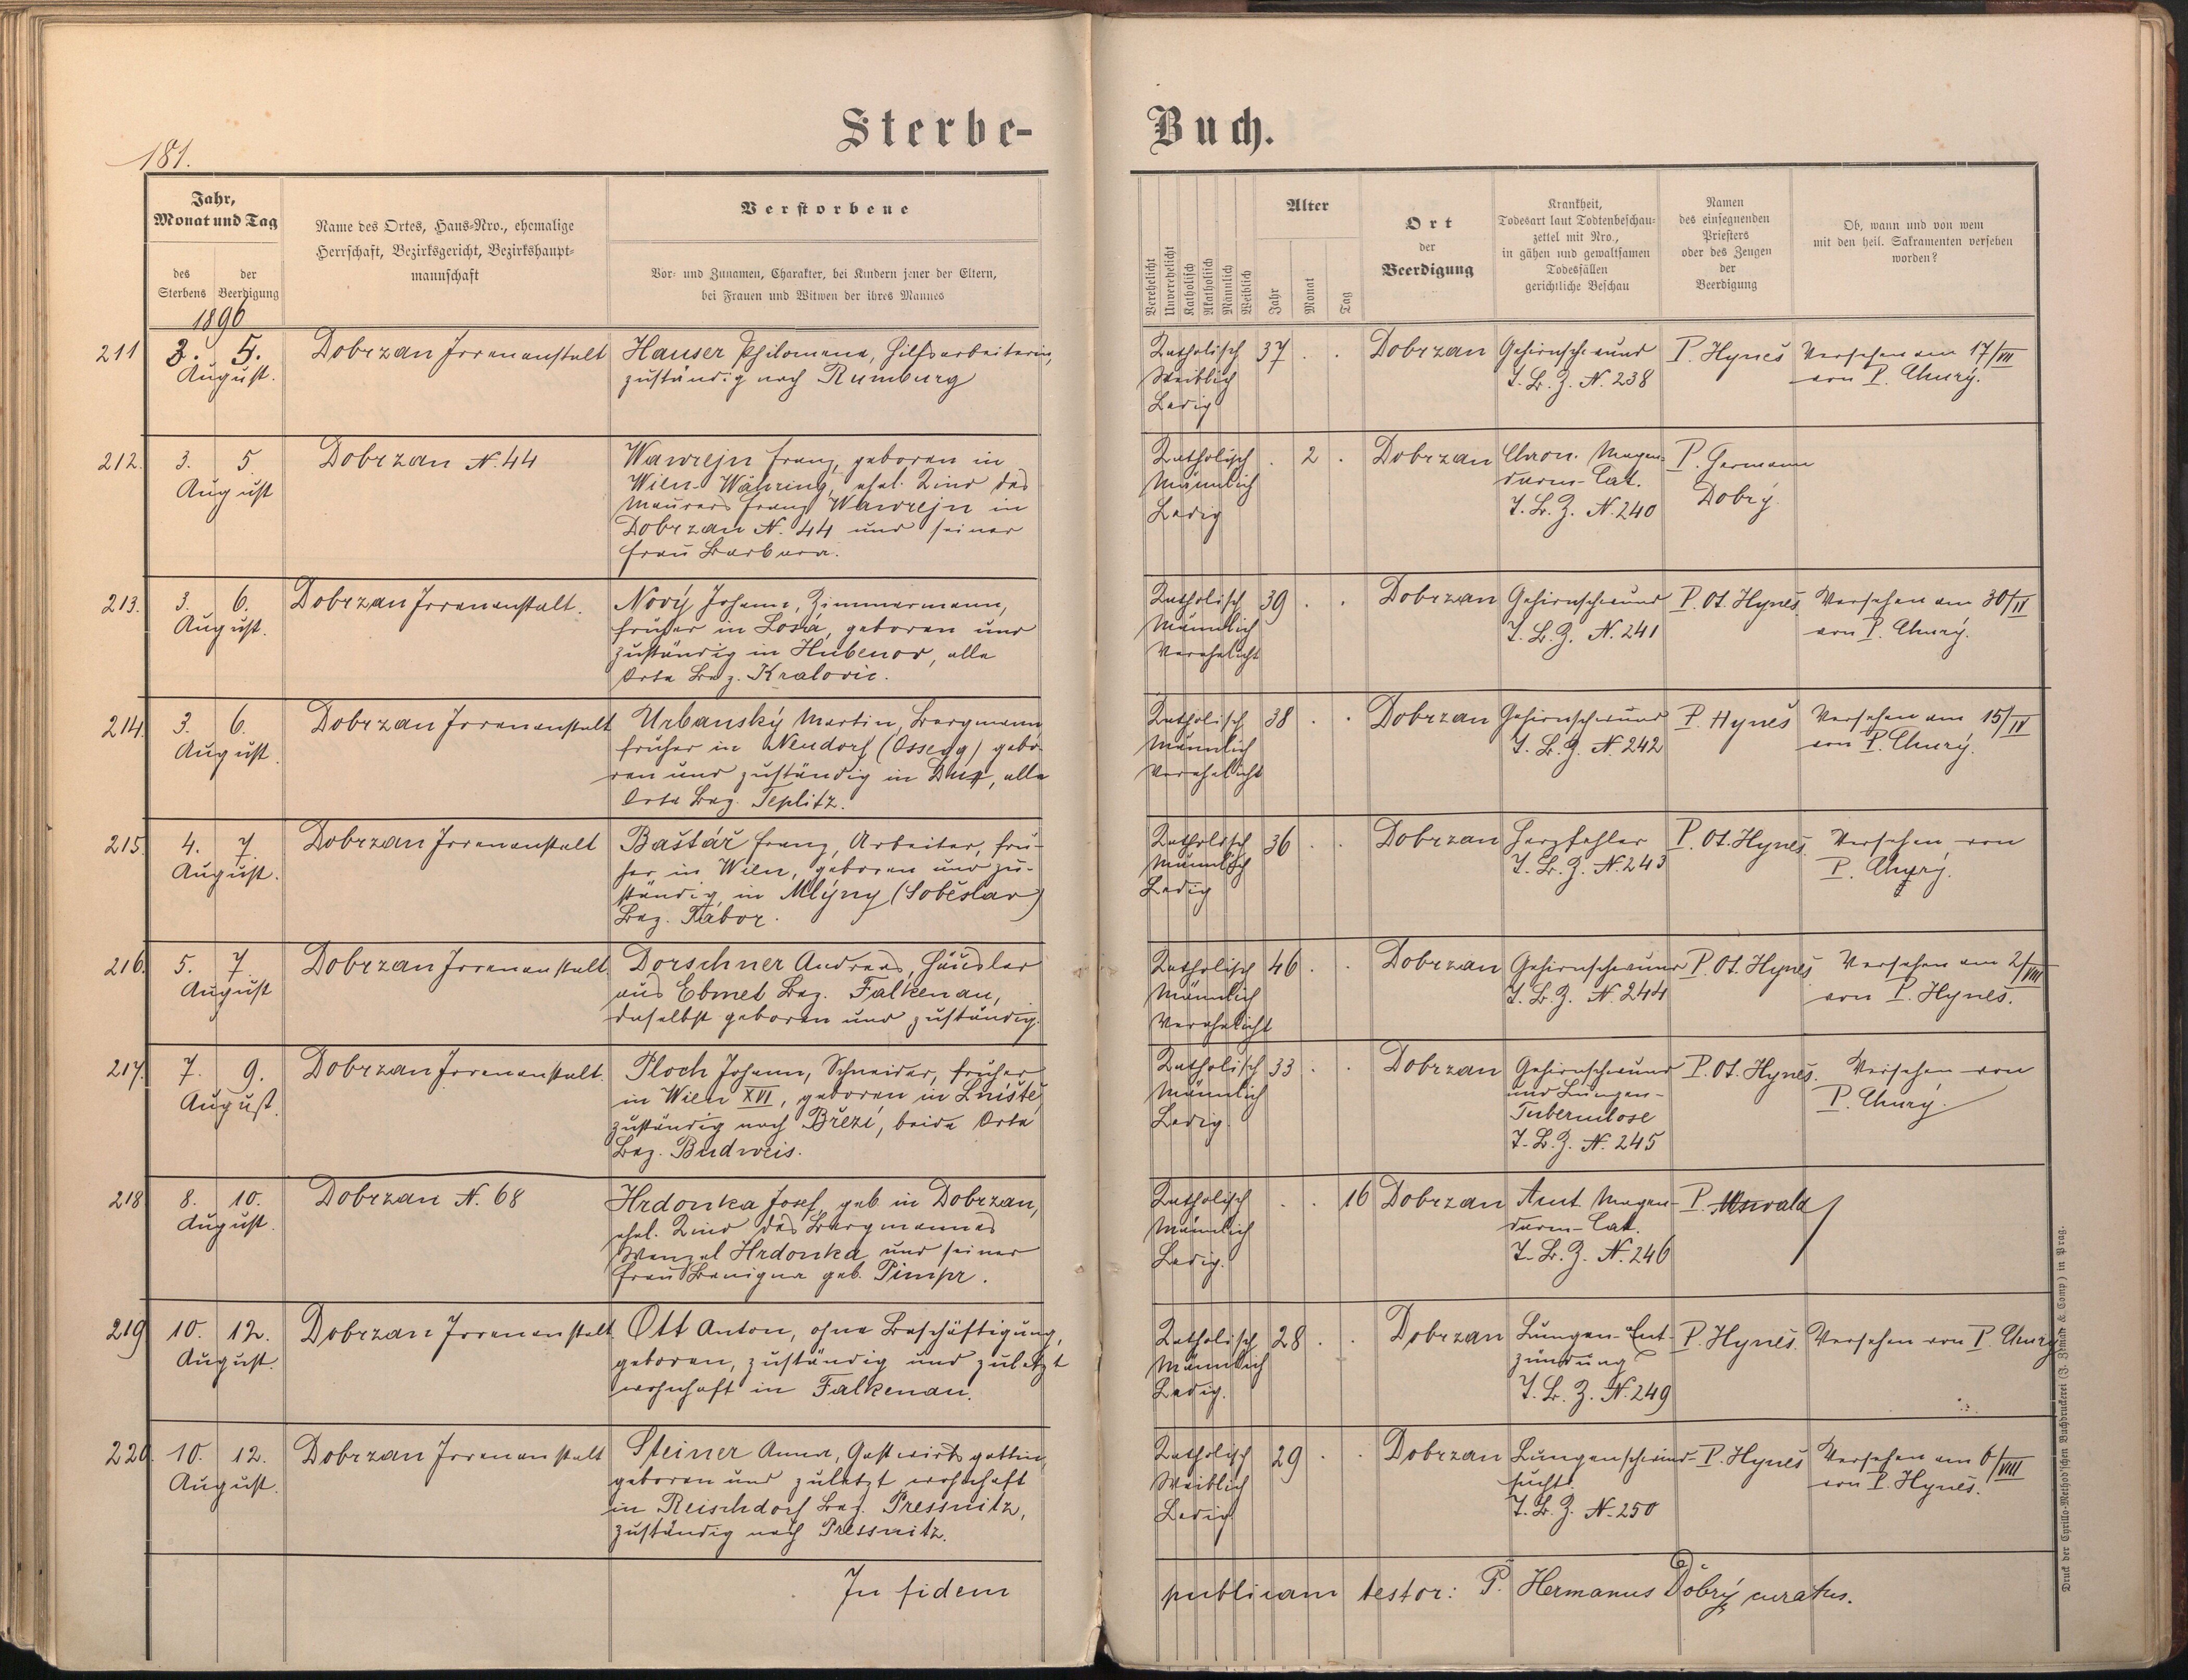 Sterbe-
Buch.
181.
Jahr,
Monat und Tag
des
Sterbens
der
Beerdigung
1896
Name des Ortes, Haus-Nro., ehemalige
Herrschaft, Bezirksgericht, Bezirkshaupt-
mannschaft
Verstorbene
Vor- und Zunamen, Charakter, bei Kindern jener der Eltern,
bei Frauen und Witwen der ihres Mannes
Verehelicht
Unverehelicht
Katholisch
Akatholisch
Männlich
Weiblich
Alter
Jahr
Monat
Tag
Ort
der
Beerdigung
Krankheit,
Todesart laut Todtenbeschau-
zettel mit Nro.,
in gähen und gewaltsamen
Todesfällen
gerichtliche Beschau
Namen
des einsegnenden
Priesters
oder des Zeugen
der
Beerdigung
Ob, wann und von wem
mit den heil. Sakramenten versehen
worden?
211
3. 5.
August.
Dobrzan Irrenanstalt
Hauser Philomena, Hilfsarbeiterin,
zuständig nach Rumburg
Katholisch
Weiblich
Ledig
37
Dobrzan
Gehirnschwund
T. B. Z. N. 238
P. Hyneš
Versehen am 17/VII
von P. Churý.
212.
3. 5.
August
Dobrzan N. 44
Wawrejn Franz, geboren in
Wien-Währing, ehel. Kind des
Maurers Franz Wawrejn in
Dobrzan N. 44 und seiner
Frau Barbara.
Katholisch
Männlich
Ledig
2
Dobrzan
Chron. Magen-
darm-Cat.
T. B. Z. N. 240
P. Hermann
Dobrý.
213.
3. 6.
August.
Dobrzan Irrenanstalt.
Nový Johann, Zimmermann,
früher in Losá, geboren und
zuständig in Hubenov, alle
Orte Bez. Kralovic.
Katholisch
Männlich
Verehelicht
39
Dobrzan
Gehirnschwund
T. B. Z. N. 241
P. Ot. Hyneš
Versehen am 30/IV
von P. Churý.
214.
3. 6.
August.
Dobrzan Irrenanstalt
Urbanský Martin, Bergmann
früher in Neudorf (Ossegg) gebo-
ren und zuständig in Dux, alle
Orte Bez. Teplitz.
Katholisch
Männlich
Verehelicht
38
Dobrzan
Gehirnschwund
T. B. Z. N. 242
P. Hyneš
Versehen am 15/IV
von P. Churý.
215.
4. 7.
August.
Dobrzan Irrenanstalt
Baštář Franz, Arbeiter, frü-
her in Wien, geboren und zu-
ständig in Mlýny (Soběslav)
Bez. Tábor.
Katholisch
Männlich
Ledig
36
Dobrzan
Herzfehler
T. B. Z. N. 243
P. Ot. Hyneš.
Versehen von
P. Churý.
216.
5. 7.
August
Dobrzan Irrenanstalt.
Dorschner Andreas, Häusler
aus Ebmet Bez. Falkenau,
daselbst geboren und zuständig.
Katholisch
Männlich
Verehelicht
46
Dobrzan
Gehirnschwund
T. B. Z. N. 244
P. Ot. Hyneš
Versehen am 2/VIII
von P. Hyneš.
217.
7. 9.
August.
Dobrzan Irrenanstalt.
Ploch Johann, Schneider, früher
in Wien XVI, geboren in Lništé,
zuständig nach Březí, beide Orte
Bez. Budweis.
Katholisch
Männlich
Ledig.
33
Dobrzan
Gehirnschwund
und Lungen-
Tuberculose
T. B. Z. N. 245
P. Ot. Hyneš.
Versehen von
P. Churý.
218.
8. 10.
August.
Dobrzan N. 68
Hrdonka Josef, geb. in Dobrzan,
ehel. Kind des Bergmannes
Wenzel Hrdonka und seiner
Frau Benigna geb. Pimpr.
Katholisch
Männlich
Ledig.
16
Dobrzan
Acut. Magen-
darm-Cat.
T. B. Z. N. 246
P.
219.
10. 12.
August.
Dobrzan Irrenanstalt
Ott Anton, ohne Beschäftigung,
geboren, zuständig und zuletzt
wohnhaft in Falkenau.
Katholisch
Männlich
Ledig.
28
Dobrzan
Lungen-Ent-
zündung
T. B. Z. N. 249
P. Hyneš.
Versehen von P. Churý
220.
10. 12.
August.
Dobrzan Irrenanstalt
Steiner Anna, Gastwirtsgattin,
geboren und zuletzt wohnhaft
in Reischdorf Bez. Pressnitz,
zuständig nach Pressnitz.
Katholisch
Weiblich
Ledig
29
Dobrzan
Lungenschwind-
sucht.
T. B. Z. N. 250
P. Hyneš
Versehen am 6/VIII
von P. Hyneš.
In fidem
publicam testor: P. Hermanus Dobrý curatus.
Druck der Cyrillo-Method'schen Buchdruckerei (J. Zeman & Comp.) in Prag.